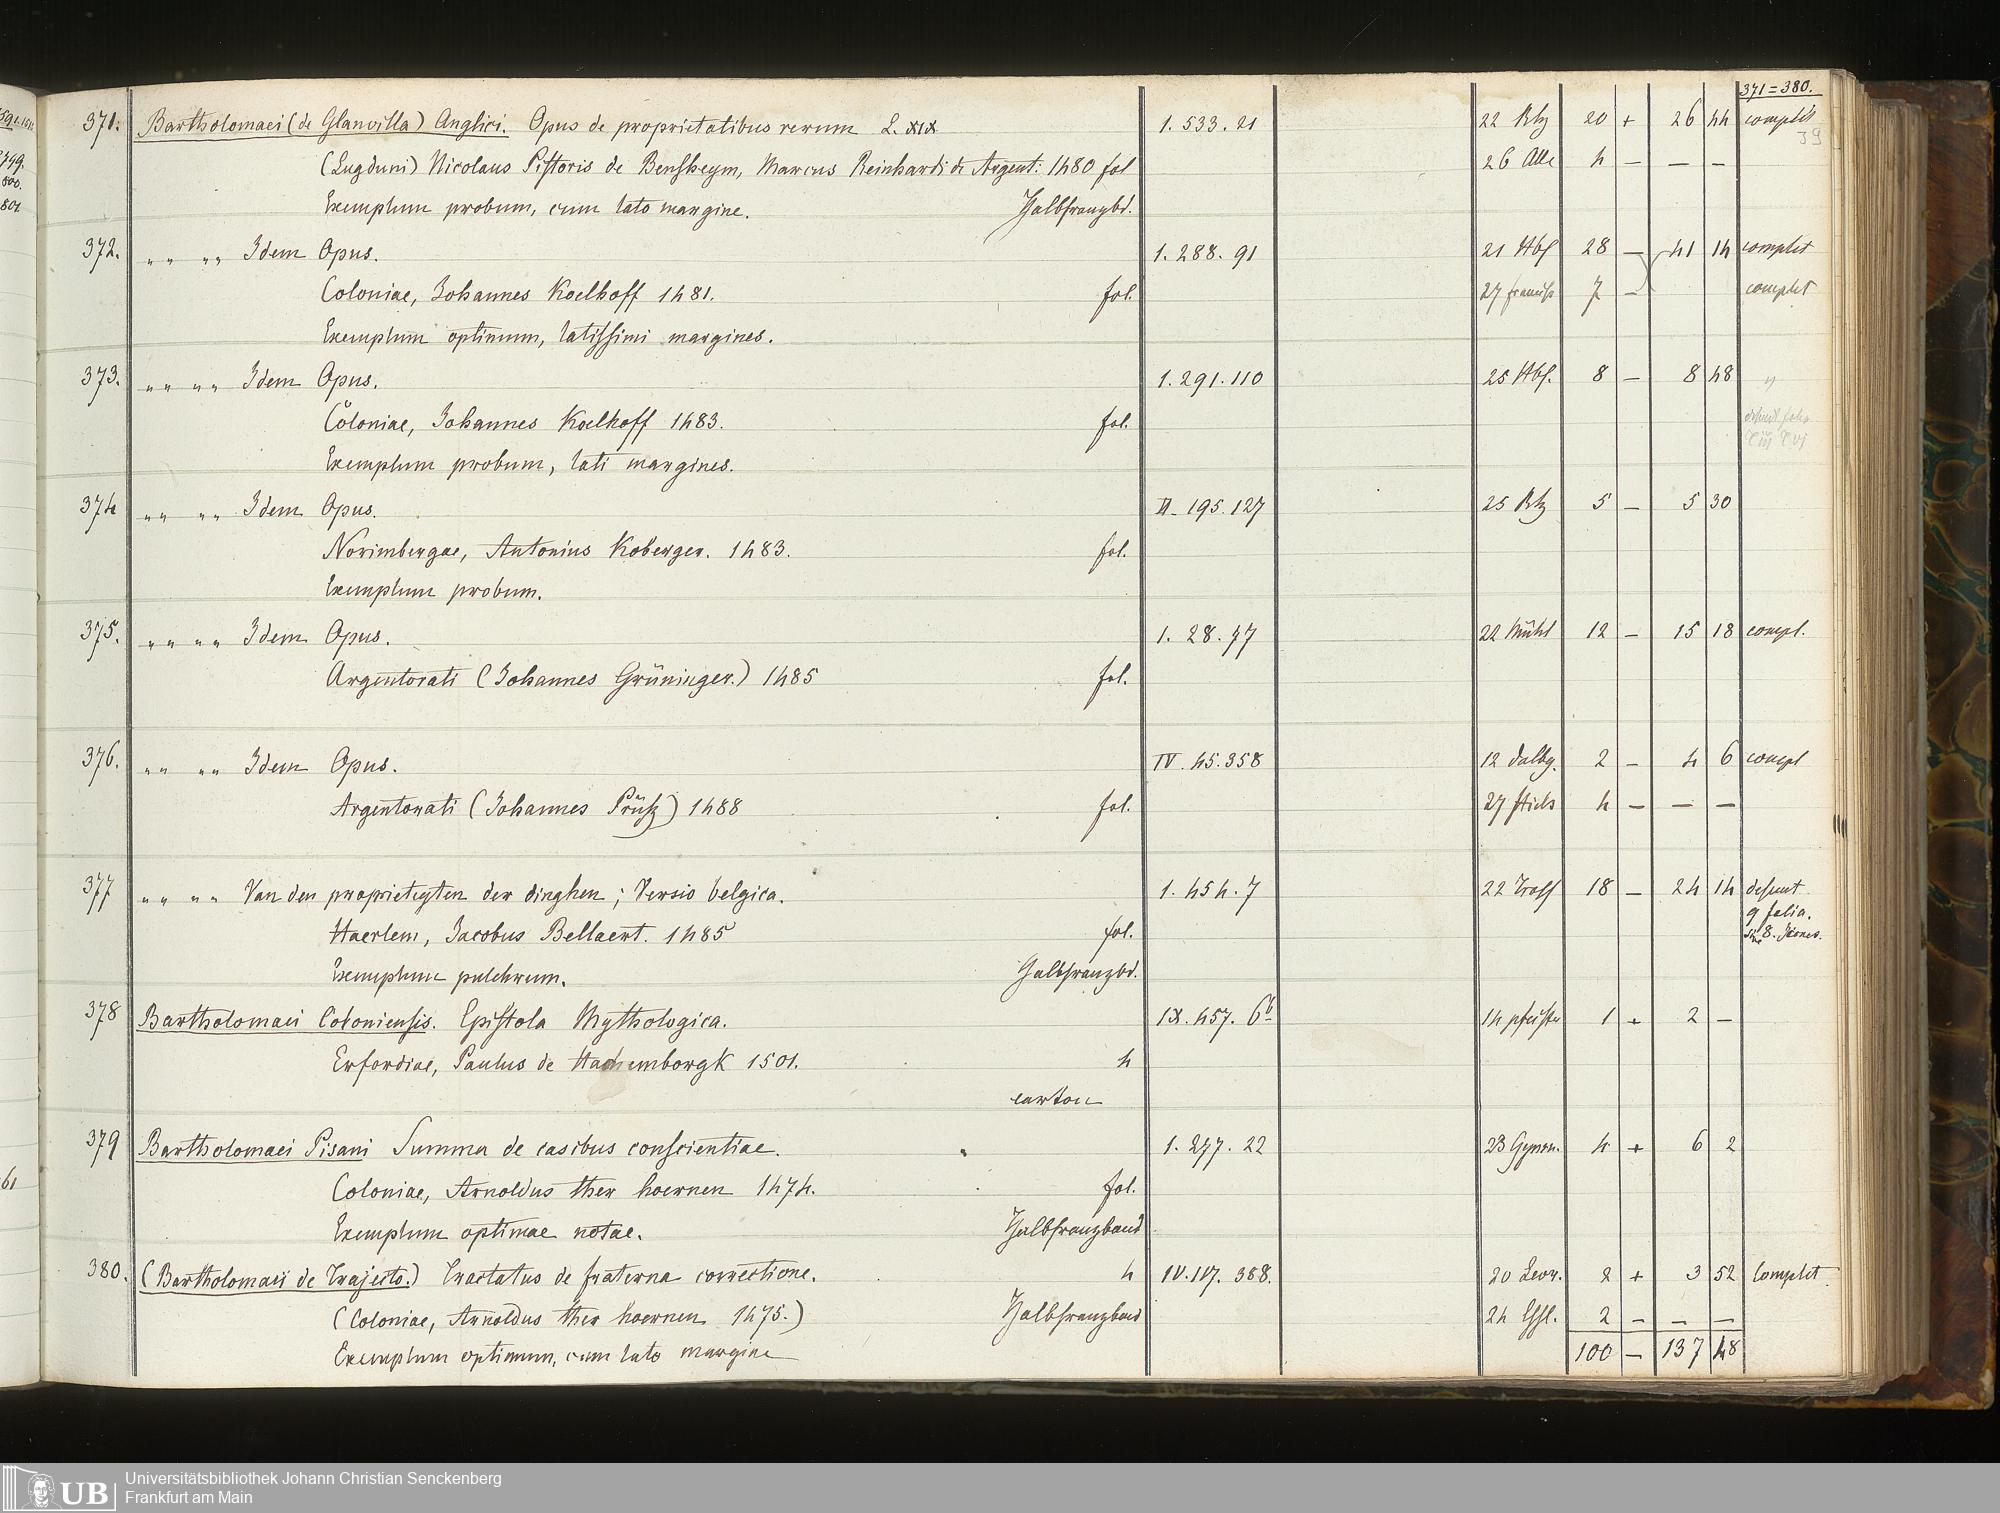 371=380.
371. Bartholomaei (de Glanvilla) Anglici. Opus de proprietatibus rerum L. XIX 1. 533. 21 22 Btz 20 + 26 44 complet
(Lugduni) Nicolaus Pistoris de Bensheym, Marcus Reinhardi de Argent: 1480 fol 26 Alle 4 — — —
39
Exemplum probum, cum lato margine. Halbfranzbd.
372. „ „ „ „ Idem Opus. 1. 288. 91 21 Hbf 28 — 41 14 complet
Coloniae, Johannes Koelhoff 1481. fol. 27 7 — complet
Exemplum optimum, latissimi margines.
373. „ „ „ „ Idem Opus. 1. 291. 110 25 Hbf. 8 — 8 48 „
Coloniae, Johannes Koelhoff 1483. fol.
Exemplum probum, lati margines.
374 „ „ „ „ Idem Opus. II. 195. 127 25 Btz 5 — 5 30
Norimbergae, Antonius Koberger. 1483. fol.
Exemplum probum.
375. „ „ „ „ Idem Opus. 1. 28. 77 22 Mühl 12 — 15 18 compl.
Argentorati (Johannes Grüninger.) 1485 fol.
376. „ „ „ „ Idem Opus. IV. 45. 358 12 Dalbg. 2 — 4 6 compl
Argentorati (Johannes Prüsz) 1488 fol. 27 4 — — —
377 „ „ „ „ Van den proprieteyten der dinghen; Versio belgica. 1. 454. 7 22 18 — 24 14 desunt
9 folia.
Haerlem, Jacobus Bellaert. 1485 fol. 8.
Exemplum pulchrum. Halbfranzbd.
378 Bartholomaei Coloniensis. Epistola Mythologica. IX. 457. 6b 14 pfister 1 + 2 —
Erfordiae, Paulus de Hachemborgk 1501. 4
carton
379 Bartholomaei Pisani Summa de casibus conscientiae. 1. 277. 22 23 Gymn. 4 + 6 2
Coloniae, Arnoldus ther hoernen 1474. fol.
Exemplum optimae notae. Halbfranzband
380. (Bartholomaei de Trajecto.) Tractatus de fraterna correctione. 4 IV. 117. 388. 20 Leon. 2 + 3 52 Complet
(Coloniae, Arnoldus ther hoernen 1475.) Halbfranzband 24 Essl. 2 — — —
Exemplum optimum, cum lato margine 100 — 137 48
UB
Universitätsbibliothek Johann Christian Senckenberg
Frankfurt am Main